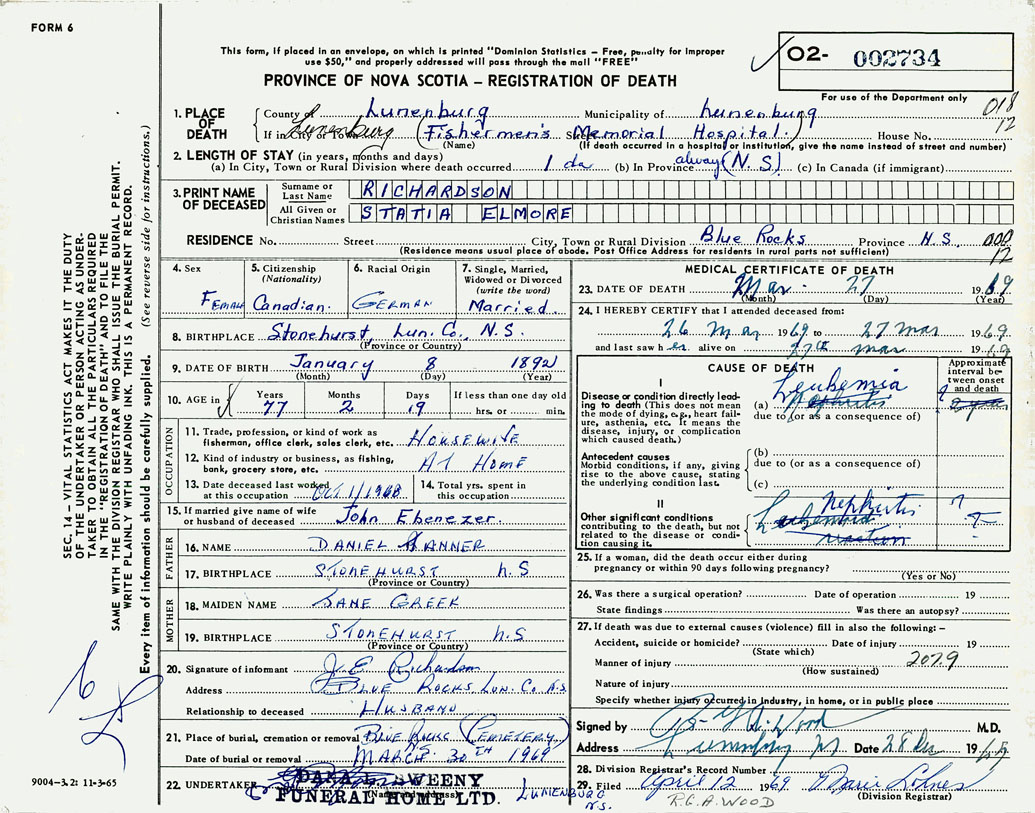 FORM 6
This form, if placed in an envelope, on which is printed "Dominion Statistics – Free, penalty for improper
use $50," and properly addressed will pass through the mail "FREE"
PROVINCE OF NOVA SCOTIA – REGISTRATION OF DEATH
O2- 002734
For use of the Department only
018
12
1. PLACE OF DEATH
County of Lunenburg Municipality of Lunenburg
If in city or Lunenburg (Fishermen's Street Memorial Hospital.) House No.
(Name) (If death occurred in a hospital or institution, give the name instead of street and number)
2. LENGTH OF STAY (in years, months and days)
(a) In City, Town or Rural Division where death occurred 1 da (b) In Province always (N.S.) (c) In Canada (if immigrant)
3. PRINT NAME OF DECEASED
Surname or Last Name RICHARDSON
All Given or Christian Names STATIA ELMORE
RESIDENCE No. Street City, Town or Rural Division Blue Rocks Province N.S. 000
12
(Residence means usual place of abode. Post Office Address for residents in rural parts not sufficient)
4. Sex Female
5. Citizenship (Nationality) Canadian.
6. Racial Origin GERMAN
7. Single, Married, Widowed or Divorced (write the word) Married
8. BIRTHPLACE Stonehurst, Lun. Co. N.S.
(Province or Country)
9. DATE OF BIRTH January 8 1892
(Month) (Day) (Year)
10. AGE in Years 77 Months 2 Days 19 If less than one day old hrs. or min.
OCCUPATION
11. Trade, profession or kind of work as fisherman, office clerk, sales clerk, etc. HOUSEWIFE
12. Kind of industry or business, as fishing, bank, grocery store, etc. AT HOME
13. Date deceased last worked at this occupation OCT 1/1968
14. Total yrs. spent in this occupation
15. If married give name of wife or husband of deceased John Ebenezer.
FATHER
16. NAME DANIEL TANNER
17. BIRTHPLACE STONEHURST N.S
(Province or Country)
MOTHER
18. MAIDEN NAME JANE GREEK
19. BIRTHPLACE STONEHURST N.S
(Province or Country)
20. Signature of informant J. E. Richardson
Address BLUE ROCKS LUN. CO N.S.
Relationship to deceased HUSBAND
21. Place of burial, cremation or removal BLUE ROCKS CEMETERY
Date of burial or removal MARCH 30TH 1969
22. UNDERTAKER DANA L. SWEENY
FUNERAL HOME LTD. LUNENBURG
N.S.
(Name and address)
MEDICAL CERTIFICATE OF DEATH
23. DATE OF DEATH Mar. 27 1969
(Month) (Day) (Year)
24. I HEREBY CERTIFY that I attended deceased from:
26 Mar 1969 to 27 mar 1969
and last saw her alive on 27th mar 1969
CAUSE OF DEATH
Approximate interval between onset and death
I
Disease or condition directly leading to death (This does not mean the mode of dying, e.g., heart failure, asthenia, etc. It means the disease, injury, or complication which caused death.)
(a) Leukemia ?
Nephritis
due to (or as a consequence of)
Antecedent causes
Morbid conditions, if any, giving rise to the above cause, stating the underlying condition last.
(b)
due to (or as a consequence of)
(c)
II
Other significant conditions contributing to the death, but not related to the disease or condition causing it.
Nephritis ?
Leukemoid
reaction ?
25. If a woman, did the death occur either during pregnancy or within 90 days following pregnancy?
(Yes or No)
26. Was there a surgical operation? Date of operation 19
State findings Was there an autopsy?
27. If death was due to external causes (violence) fill in also the following: –
Accident, suicide or homicide? Date of injury 19
(State which)
Manner of injury 2079
(How sustained)
Nature of injury
Specify whether injury occurred in Industry, in home, or in public place
Signed by R. G. A. Wood M.D.
Address Lunenburg NS Date 28 1969
28. Division Registrar's Record Number
29. Filed April 12 1969 Marie Lohnes
(Division Registrar)
R.G.A. WOOD
SEC. 14 – VITAL STATISTICS ACT MAKES IT THE DUTY
OF THE UNDERTAKER OR PERSON ACTING AS UNDER-
TAKER TO OBTAIN ALL THE PARTICULARS REQUIRED
IN THE "REGISTRATION OF DEATH" AND TO FILE THE
SAME WITH THE DIVISION REGISTRAR WHO SHALL ISSUE THE BURIAL PERMIT.
WRITE PLAINLY WITH UNFADING INK. THIS IS A PERMANENT RECORD.
Every item of information should be carefully supplied. (See reverse side for instructions.)
9004-3.2: 11-3-65